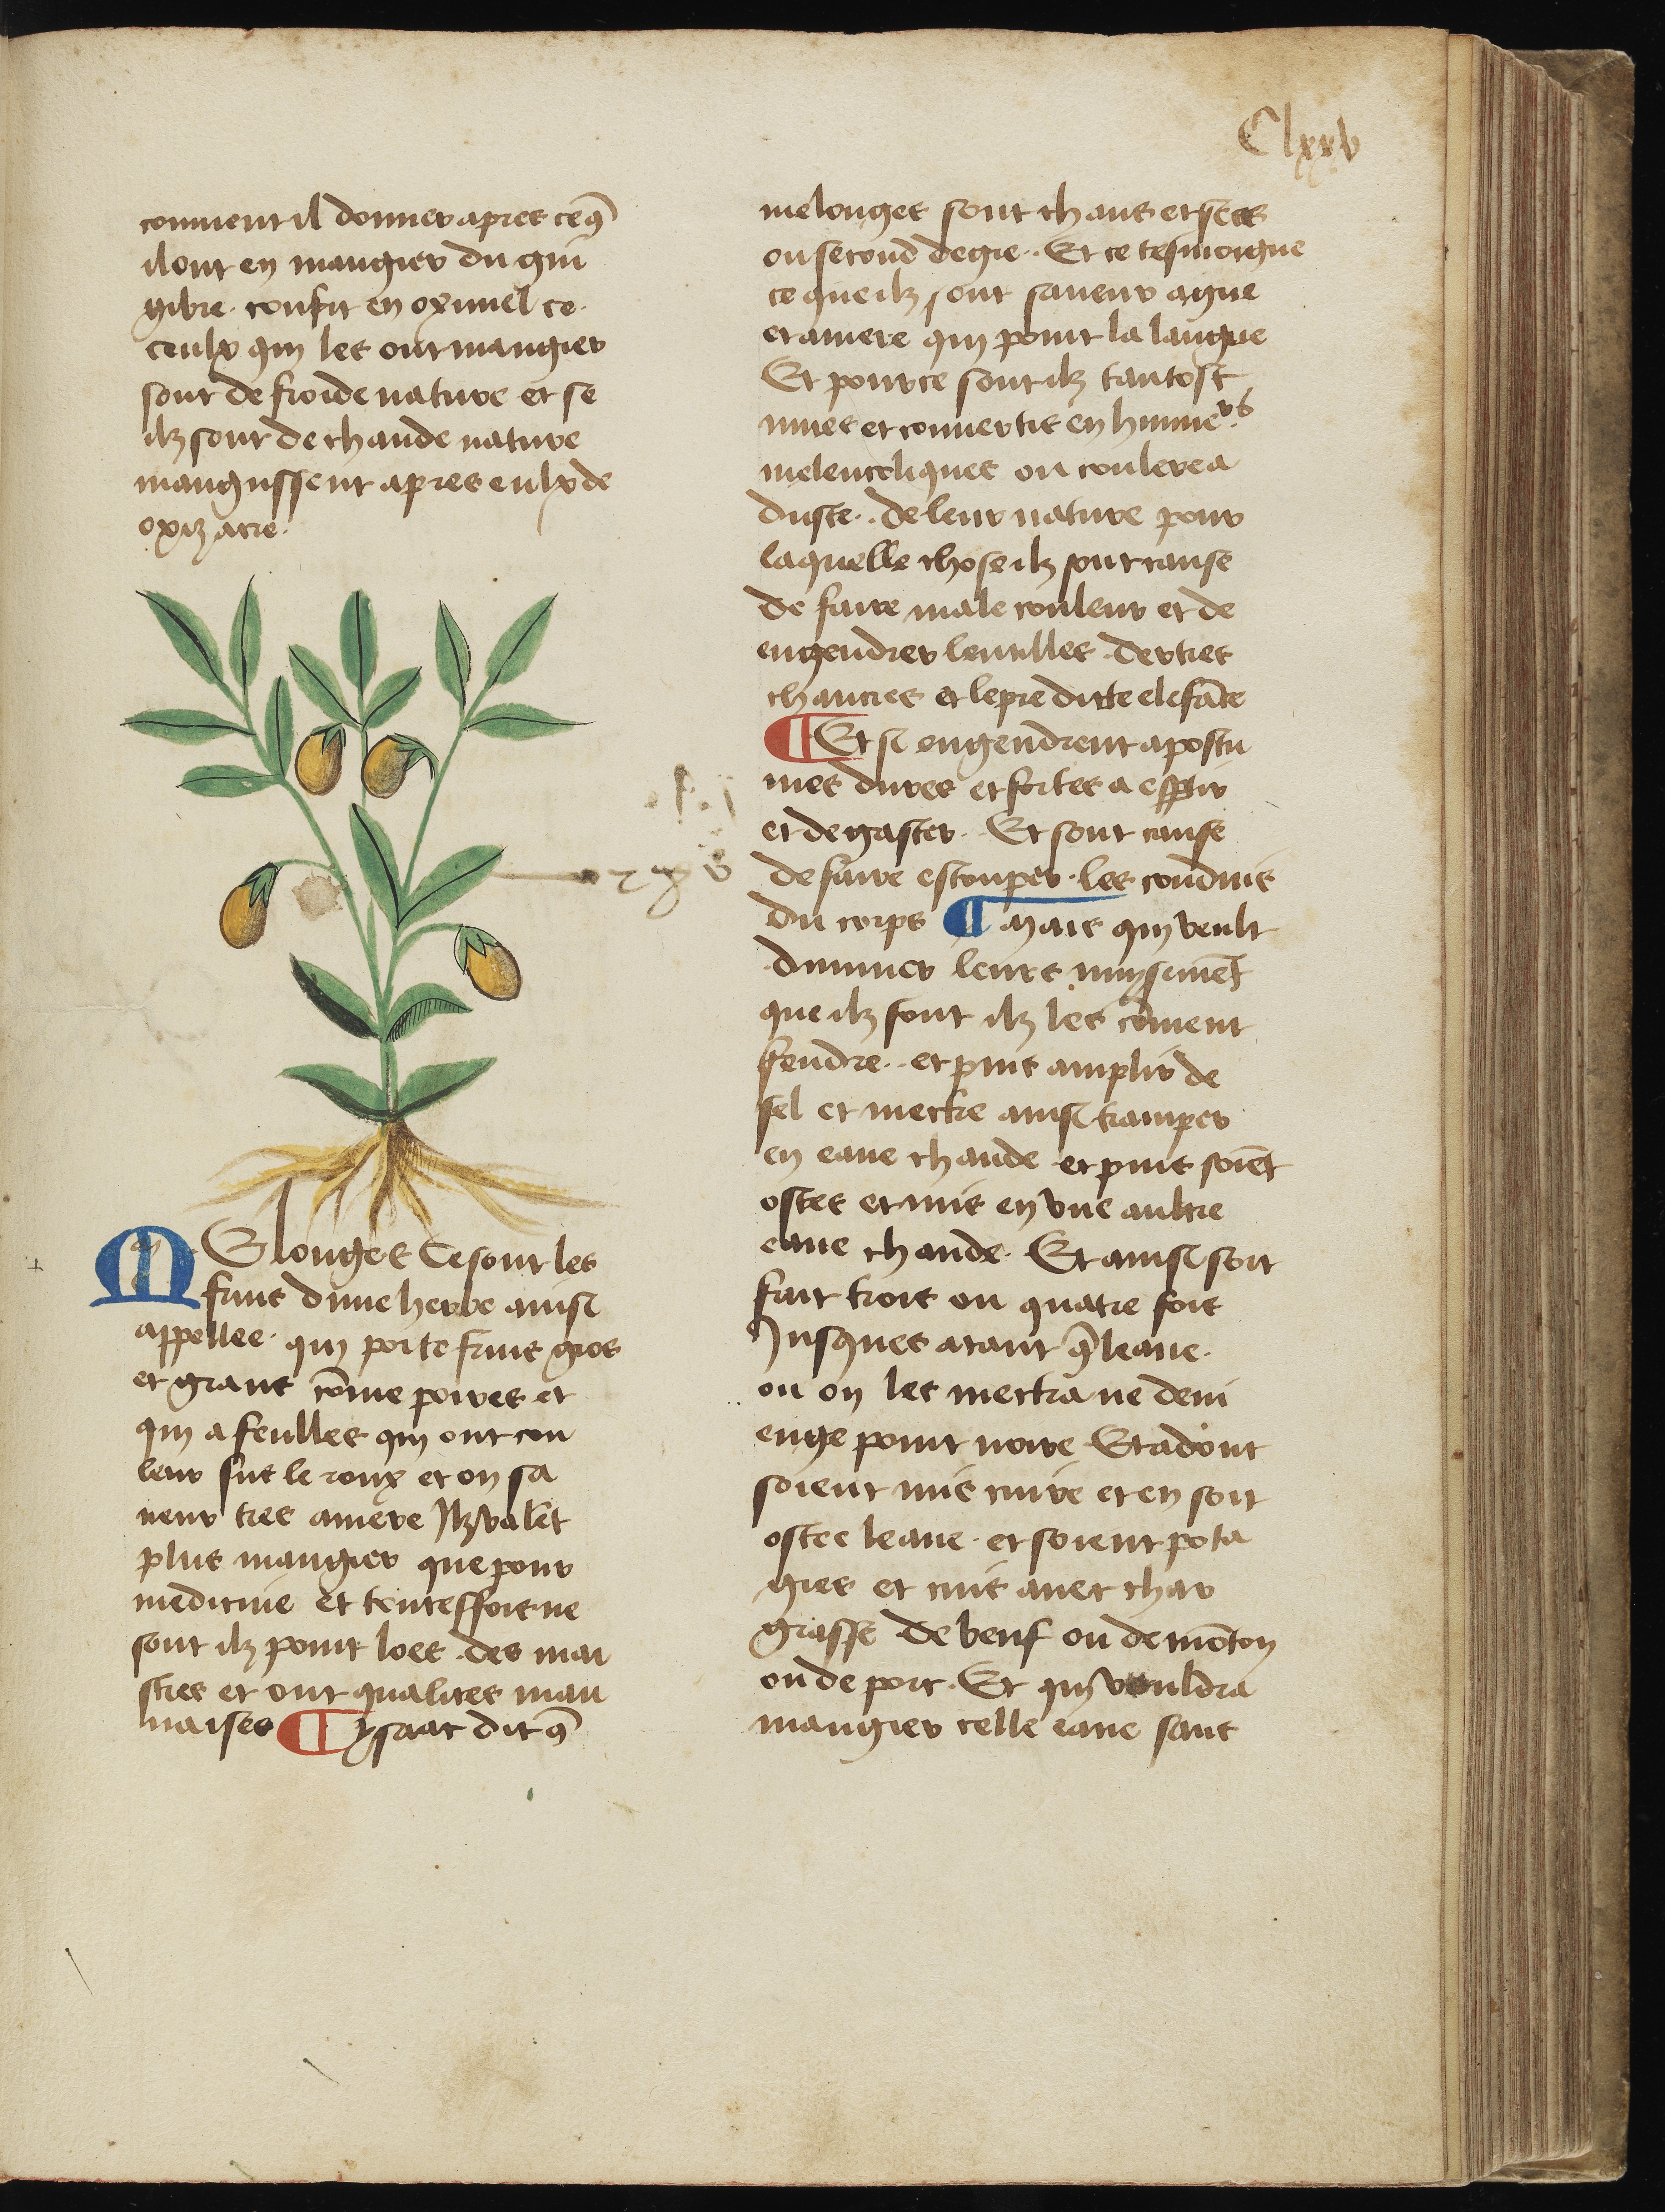 Clxxv
convient il donner apres ce q̃
il ont en mangier du gin
gibre . confit en oximel ce .
ceulx qui les ont mangier
sont de froide nature et se
ilz sont de chaude nature
mangussent apres eulx de
oxizacre .
MElonges Ce sont les
fruis dune herbe ainsi
appellee . qui porte fruis gros
et grans cõme poires et
qui a feulles qui ont cou
leur sus le roux et on sa
veur tres amere Ilz valẽt
plus mangier que pour
medicine et toutesfois ne
sont ilz point loes . des mai
stres et ont qualites mau
vaises ¶ ysaac dit q̃
melonges sont chaus et secs
ou second degre . Et ce tesmoigne
ce que ilz ont saveur ague
et amere qui point la langue
Et pour ce sont ilz tantost
mues et convertis en humeurs .
melencoliques ou coulere a
duste . de leur nature pour
laquelle chose ilz sont cause
de faire male couleur et de
engendrer lentilles . dertres
chancres et lepre ditte elefãte
¶ Et si engendrent apostu
mes dures et fortes a
et de gaster . Et sont cause
de faire estouper . les conduis
du corps ¶ Mais qui veult
dminuer leurs nuysimẽt
que ilz font ilz les cõvient
fendre . et puis amplir de
sel et mectre ainsi tramper
en eaue chaude et puis soiẽt
ostes et mis en une aultre
eaue chaude . Et ainsi soit
fait trois ou quatre fois
Jusques a tant q̃ leaue .
ou on les mectra ne devi
enge point noire Et adont
soient mis cuire et en soit
ostee leaue . et soient pota
gies et cuis avec char
grasse de beuf ou de mõton
ou de porc . Et qui vouldra
mangier celle eaue sans